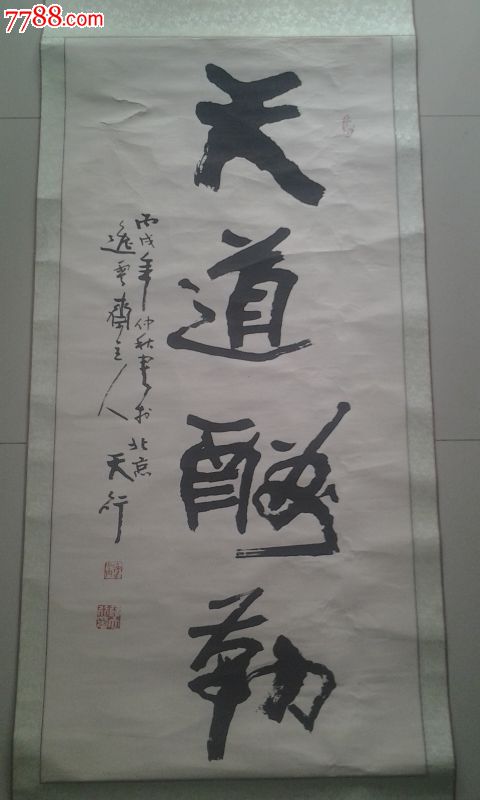 7788.com
天道酬勤
丙戌年仲秋書於北京
逸雲齋主人天行